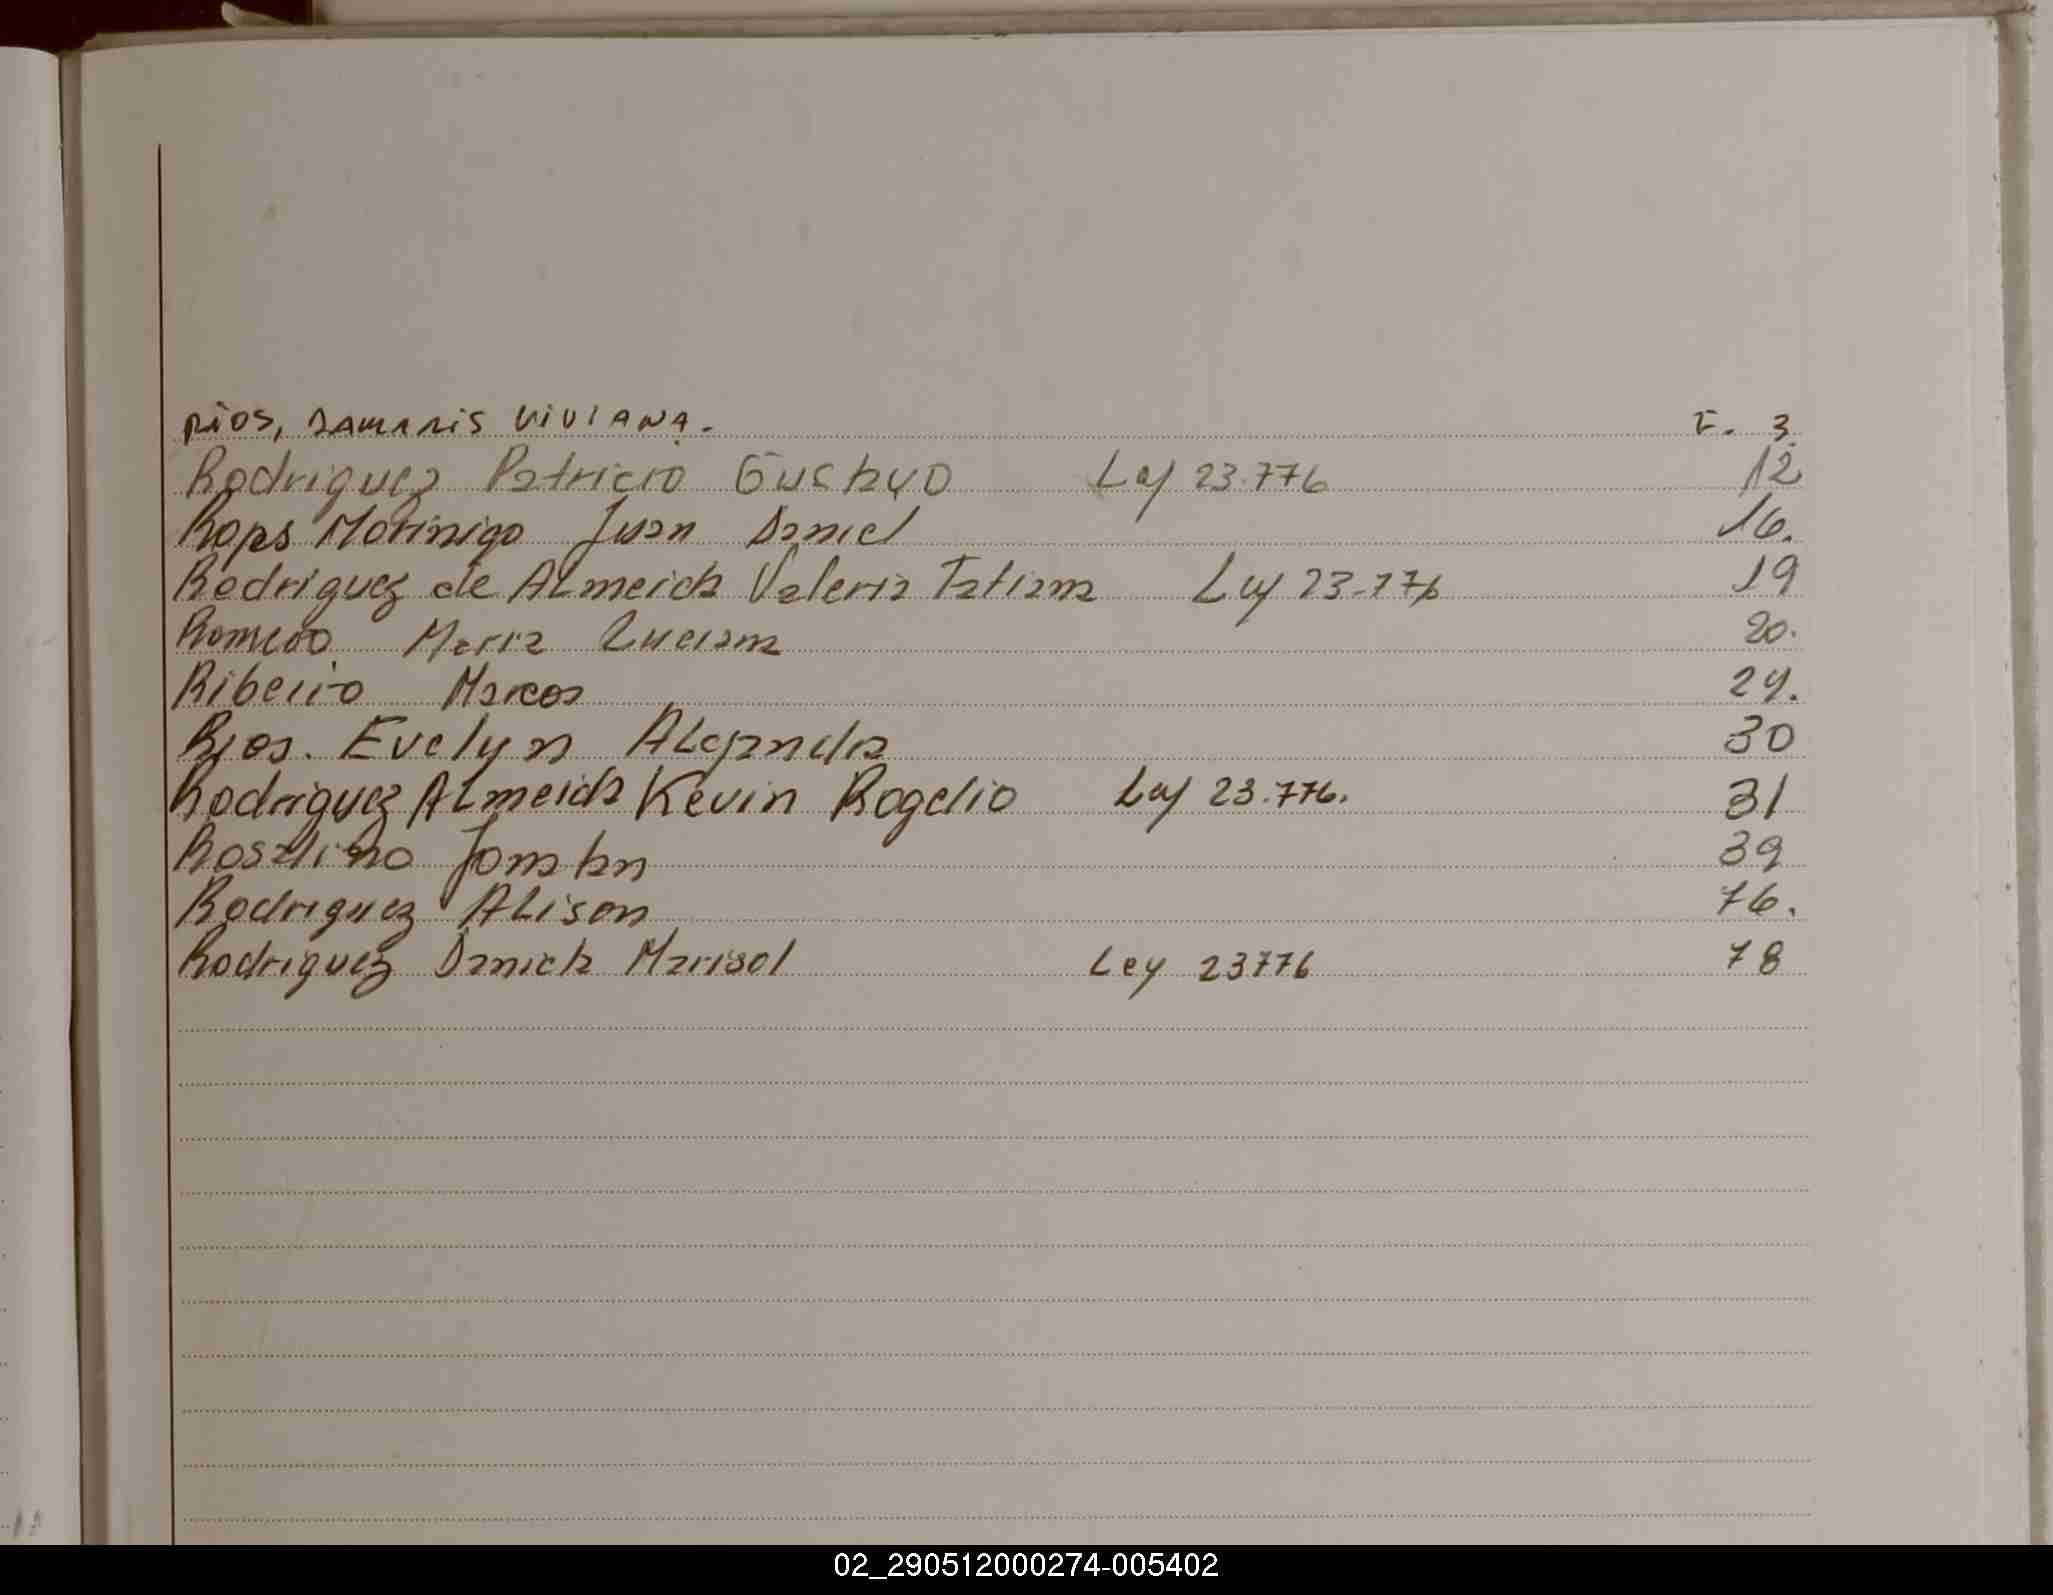 RÍOS, DAMARIS VIVIANA. F. 3.
Rodriguez Patricio Gustavo Ley 23.776 12
Rops Morinigo Juan Daniel 16.
Rodriguez de ALmeida Valeria Tatiana Ley 23.776 19
Romero Maria Luciana 20.
Ribeiro Marcos 29.
Rios. Evelyn ALejandra 30
Rodriguez ALmeida Kevin Rogelio Ley 23.776. 31
Jonatan 39
Rodriguez ALison 76.
Rodriguez Daniela Marisol Ley 23776 78
02_290512000274-005402